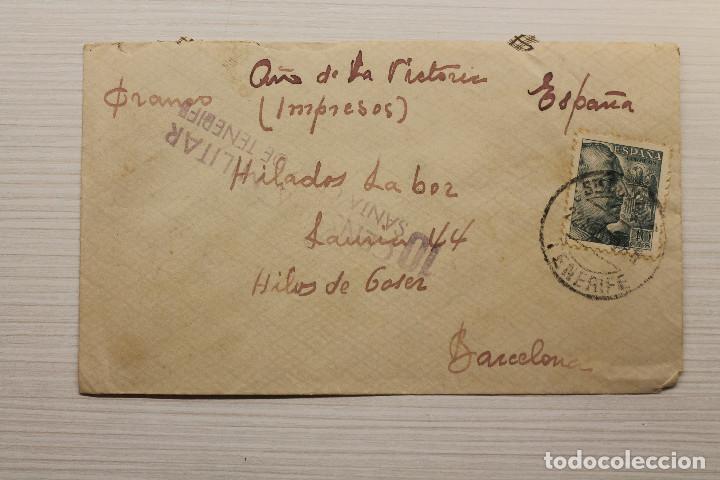 Año de la Victoria
Franco (Impresos) España
MILITAR
DE TENERIFE
SANTA
Hilados Labor
Lauria 44
Hilos de Coser
Barcelona
ESPAÑA
TENERIFE
todocoleccion.net